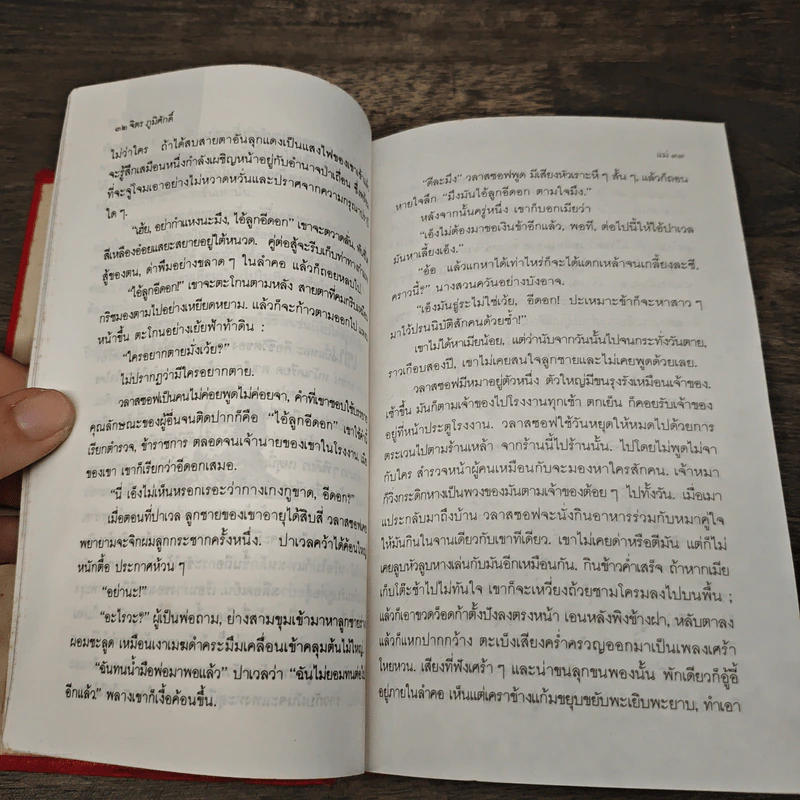 ๓๒ จิตร ภูมิศักดิ์
ไม่ว่าใคร ถ้าได้สบสายตาอันลุกแดงเป็นแสงไฟของเขาเข้าแล้ว
จะรู้สึกเสมือนหนึ่งกำลังเผชิญหน้าอยู่กับอำนาจป่าเถื่อน
ที่จะจู่โจมเอาอย่างไม่หวาดหวั่นและปราศจากความกรุณา
ใด ๆ.
"เฮ้ย, อย่ากำแหงนะมึง, ไอ้ลูกอีดอก" เขาจะตวาดลั่น,
สีเหลืองอ๋อยแสยะสยายอยู่ใต้หนวด. คู่ต่อสู้จะรีบเก็บท่าทาง
สู้ของตน, ด่าพึมอย่างขลาด ๆ ในลำคอ แล้วก็ถอยหลบไป.
"ไอ้ลูกอีดอก!" เขาจะตะโกนตามหลัง สายตาที่คมกริบเหมือน
กริชมองตามไปอย่างเหยียดหยาม. แล้วก็จะก้าวตามออกไป
หน้าขึ้น ตะโกนอย่างเย้ยฟ้าท้าดิน :
"ใครอยากตายมั่งเว้ย?"
ไม่ปรากฏว่ามีใครอยากตาย.
วลาสซอฟเป็นคนไม่ค่อยพูดไม่ค่อยจา, คำที่เขาชอบใช้
คุณลักษณะของผู้อื่นจนติดปากก็คือ "ไอ้ลูกอีดอก" เขาใช้คำนี้
เรียกตำรวจ, ข้าราชการ ตลอดจนเจ้านายของเขาในโรงงาน,
ของเขา เขาก็เรียกว่าอีดอกเสมอ.
"นี่ เอ็งไม่เห็นหรอกเรอะว่ากางเกงกูขาด, อีดอก?"
เมื่อตอนที่ปาเวล ลูกชายของเขาอายุได้สิบสี่ วลาสซอฟเคย
พยายามจะจิกผมลูกกระชากครั้งหนึ่ง. ปาเวลคว้าได้ค้อนใหญ่
หนักตื้อ ประกาศห้วน ๆ
"อย่านะ!"
"อะไรวะ?" ผู้เป็นพ่อถาม, ย่างสามขุมเข้ามาหาลูกชาย
ผอมชะลูด เหมือนเงาเมฆดำคระมึมเคลื่อนเข้าคลุมต้นไม้ใหญ่.
"ฉันทนน้ำมือพ่อมาพอแล้ว" ปาเวลว่า "ฉันไม่ยอมทนต่อไป
อีกแล้ว" พลางเขาก็เงื้อค้อนขึ้น.
แม่ ๓๓
"ดีละมึง" วลาสซอฟพูด มีเสียงหัวเราะหึ ๆ สั้น ๆ, แล้วก็ถอน
หายใจลึก "มึงมันไอ้ลูกอีดอก ตามใจมึง."
หลังจากนั้นครู่หนึ่ง เขาก็บอกเมียว่า
"เอ็งไม่ต้องมาขอเงินข้าอีกแล้ว, พอที, ต่อไปนี้ให้ไอ้ปาเวล
มันหาเลี้ยงเอ็ง."
"อ้อ แล้วแกหาได้เท่าไหร่ก็จะได้แดกเหล้าจนเกลี้ยงละซี,
คราวนี้?" นางสวนควันอย่างบังอาจ.
"เอ็งมันธู่ระไม่ใช่เว้ย, อีดอก! ปะเหมาะข้าก็จะหาสาว ๆ
มาไว้ปรนนิบัติสักคนด้วยซ้ำ!"
เขาไม่ได้หาเมียน้อย, แต่ว่านับจากวันนั้นไปจนกระทั่งวันตาย,
ราวเกือบสองปี, เขาไม่เคยสนใจลูกชายและไม่เคยพูดด้วยเลย.
วลาสซอฟมีหมาอยู่ตัวหนึ่ง ตัวใหญ่มีขนรุงรังเหมือนเจ้าของ.
เช้าขึ้น มันก็ตามเจ้าของไปโรงงานทุกเช้า ตกเย็น ก็คอยรับเจ้าของ
อยู่ที่หน้าประตูโรงงาน. วลาสซอฟใช้วันหยุดให้หมดไปด้วยการ
ตระเวนไปตามร้านเหล้า จากร้านนี้ไปร้านนั้น. ไปโดยไม่พูดไม่จา
กับใคร สำรวจหน้าผู้คนเหมือนกับจะมองหาใครสักคน. เจ้าหมา
ก็วิ่งกระดิกหางเป็นพวงของมันตามเจ้าของต้อย ๆ ไปทั้งวัน. เมื่อเมา
ประกลับมาถึงบ้าน วลาสซอฟจะนั่งกินอาหารร่วมกับหมาคู่ใจ
ให้มันกินในจานเดียวกับเขาทีเดียว. เขาไม่เคยด่าหรือตีมัน, แต่ก็ไม่
เคยลูบหัวลูบหางเล่นกับมันอีกเหมือนกัน. กินข้าวค่ำเสร็จ ถ้าหากเมีย
เก็บโต๊ะช้าไปไม่ทันใจ เขาก็จะเหวี่ยงถ้วยชามโครมลงไปบนพื้น ;
แล้วก็เอาขวดว็อดก้าตั้งปังลงตรงหน้า เอนหลังพิงข้างฝา, หลับตาลง
แล้วก็แหกปากกว้าง ตะเบ็งเสียงคร่ำครวญออกมาเป็นเพลงเศร้า
โหยหวน. เสียงที่ฟังเศร้า ๆ และน่าขนลุกขนพองนั้น พักเดียวก็อู้อี้
อยู่ภายในลำคอ เห็นแต่เคราข้างแก้มขยุบขยับพะเยิบพะยาบ, ทำเอา